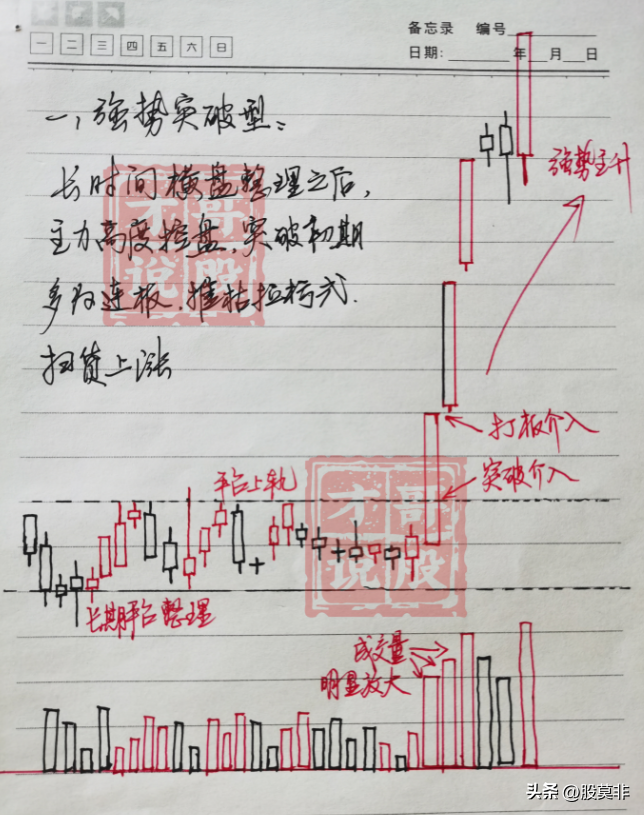 备忘录 编号
一 二 三 四 五 六 日
日期: 年 月 日
一、强势突破型:
长时间横盘整理之后,
主力高度控盘.突破初期
多为连板.摧枯拉朽式.
扫货上涨
强势主升
打板介入
突破介入
平台上轨
长期平台整理
成交量
明显放大
才哥
说股
才哥
说股
头条 @股莫非